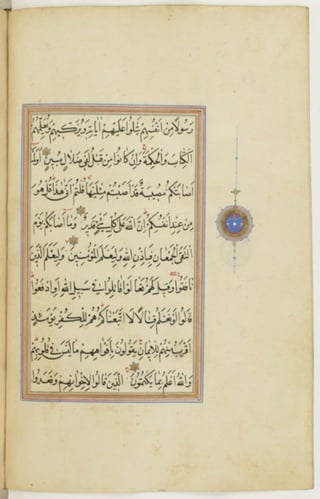 رَسُولًا مِنْ أَنْفُسِهِمْ يَتْلُوا عَلَيْهِمْ آيَاتِهِ وَيُزَكِّيهِمْ وَيُعَلِّمُهُمُ
الْكِتَابَ وَالْحِكْمَةَ وَإِنْ كَانُوا مِنْ قَبْلُ لَفِي ضَلَالٍ مُبِينٍ أَوَلَمَّا
أَصَابَتْكُمْ مُصِيبَةٌ قَدْ أَصَبْتُمْ مِثْلَيْهَا قُلْتُمْ أَنَّى هَذَا قُلْ هُوَ
مِنْ عِنْدِ أَنْفُسِكُمْ إِنَّ اللَّهَ عَلَى كُلِّ شَيْءٍ قَدِيرٌ وَمَا أَصَابَكُمْ يَوْمَ
الْتَقَى الْجَمْعَانِ فَبِإِذْنِ اللَّهِ وَلِيَعْلَمَ الْمُؤْمِنِينَ وَلِيَعْلَمَ الَّذِينَ
نَافَقُوا وَقِيلَ لَهُمْ تَعَالَوْا قَاتِلُوا فِي سَبِيلِ اللَّهِ أَوِ ادْفَعُوا
قَالُوا لَوْ نَعْلَمُ قِتَالًا لَاتَّبَعْنَاكُمْ هُمْ لِلْكُفْرِ يَوْمَئِذٍ
أَقْرَبُ مِنْهُمْ لِلْإِيمَانِ يَقُولُونَ بِأَفْوَاهِهِمْ مَا لَيْسَ فِي قُلُوبِهِمْ
وَاللَّهُ أَعْلَمُ بِمَا يَكْتُمُونَ الَّذِينَ قَالُوا لِإِخْوَانِهِمْ وَقَعَدُوا